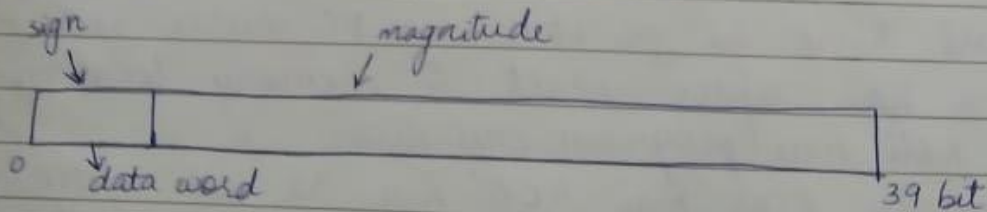 sign magnitude
0 data word 39 bit